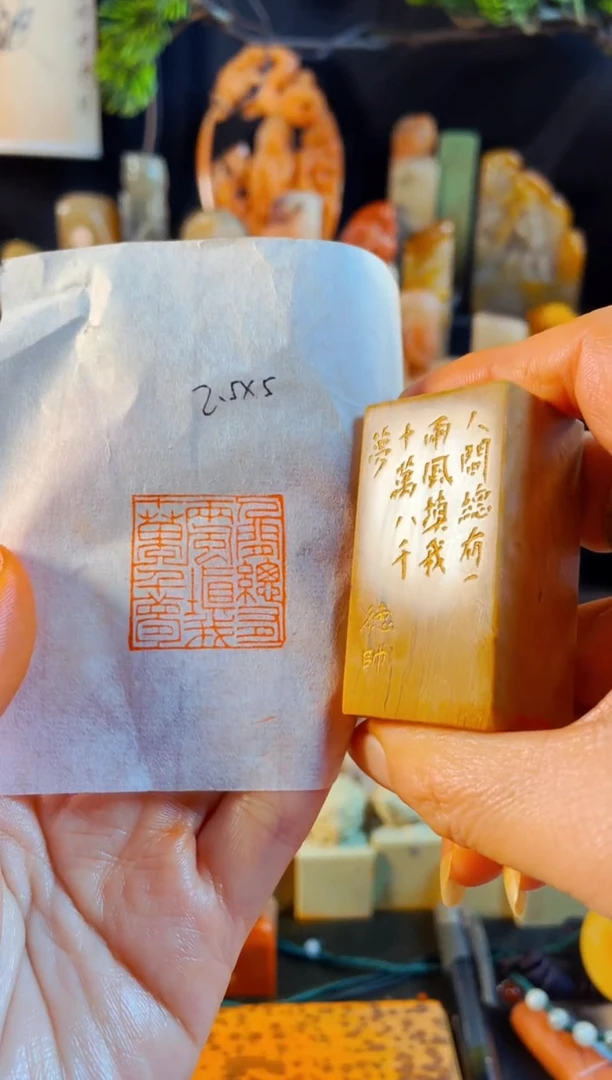 2.5x5
人間總有
一兩風填我
十萬八千夢
人間總有一
兩風填我
十萬八千
夢
德帥